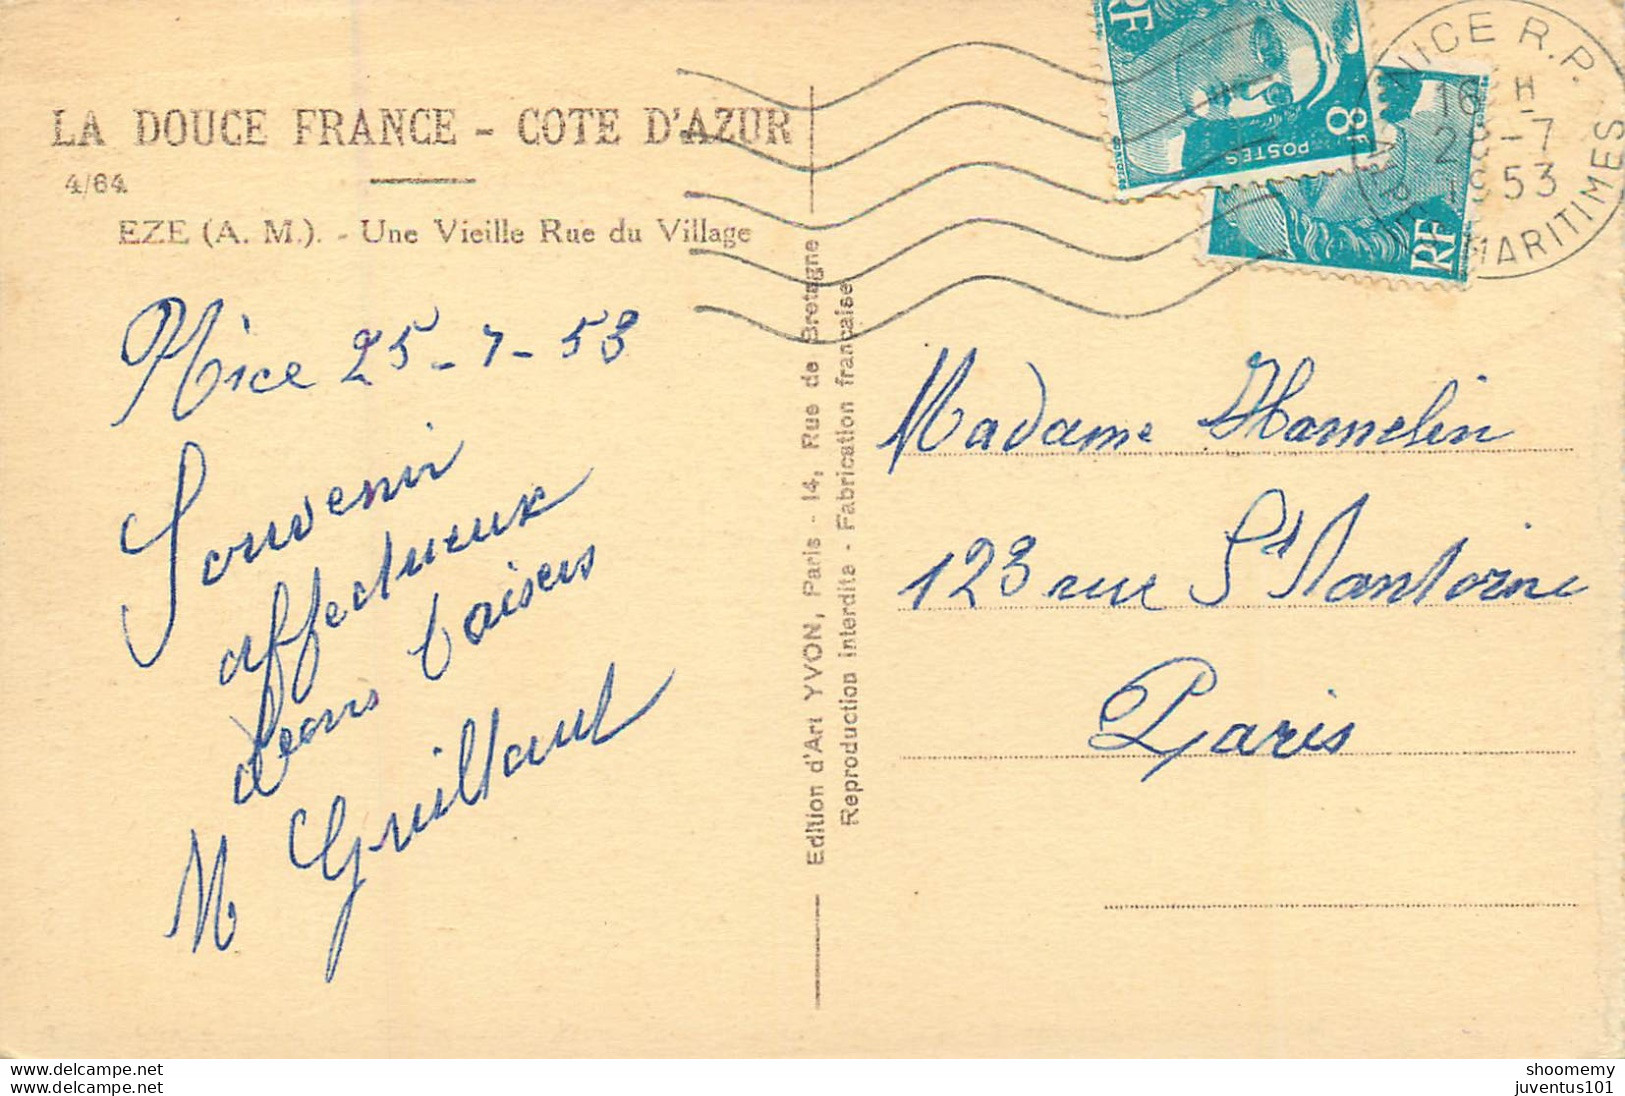 LA DOUCE FRANCE - COTE D'AZUR
4/64
EZE (A. M.). - Une Vieille Rue du Village
Nice 25-7-53
Souvenir
affectueux
bons baisers
M Guillaut
Edition d'Art YVON, Paris - 14, Rue de Bretagne
Reproduction interdite - Fabrication française
RF
8F
POSTES
RF
NICE R.P.
16 H
28-7
1953
MARITIMES
Madame Hamelin
123 rue St Antoine
Paris
shoomemy
juventus101
shoomemy
juventus101